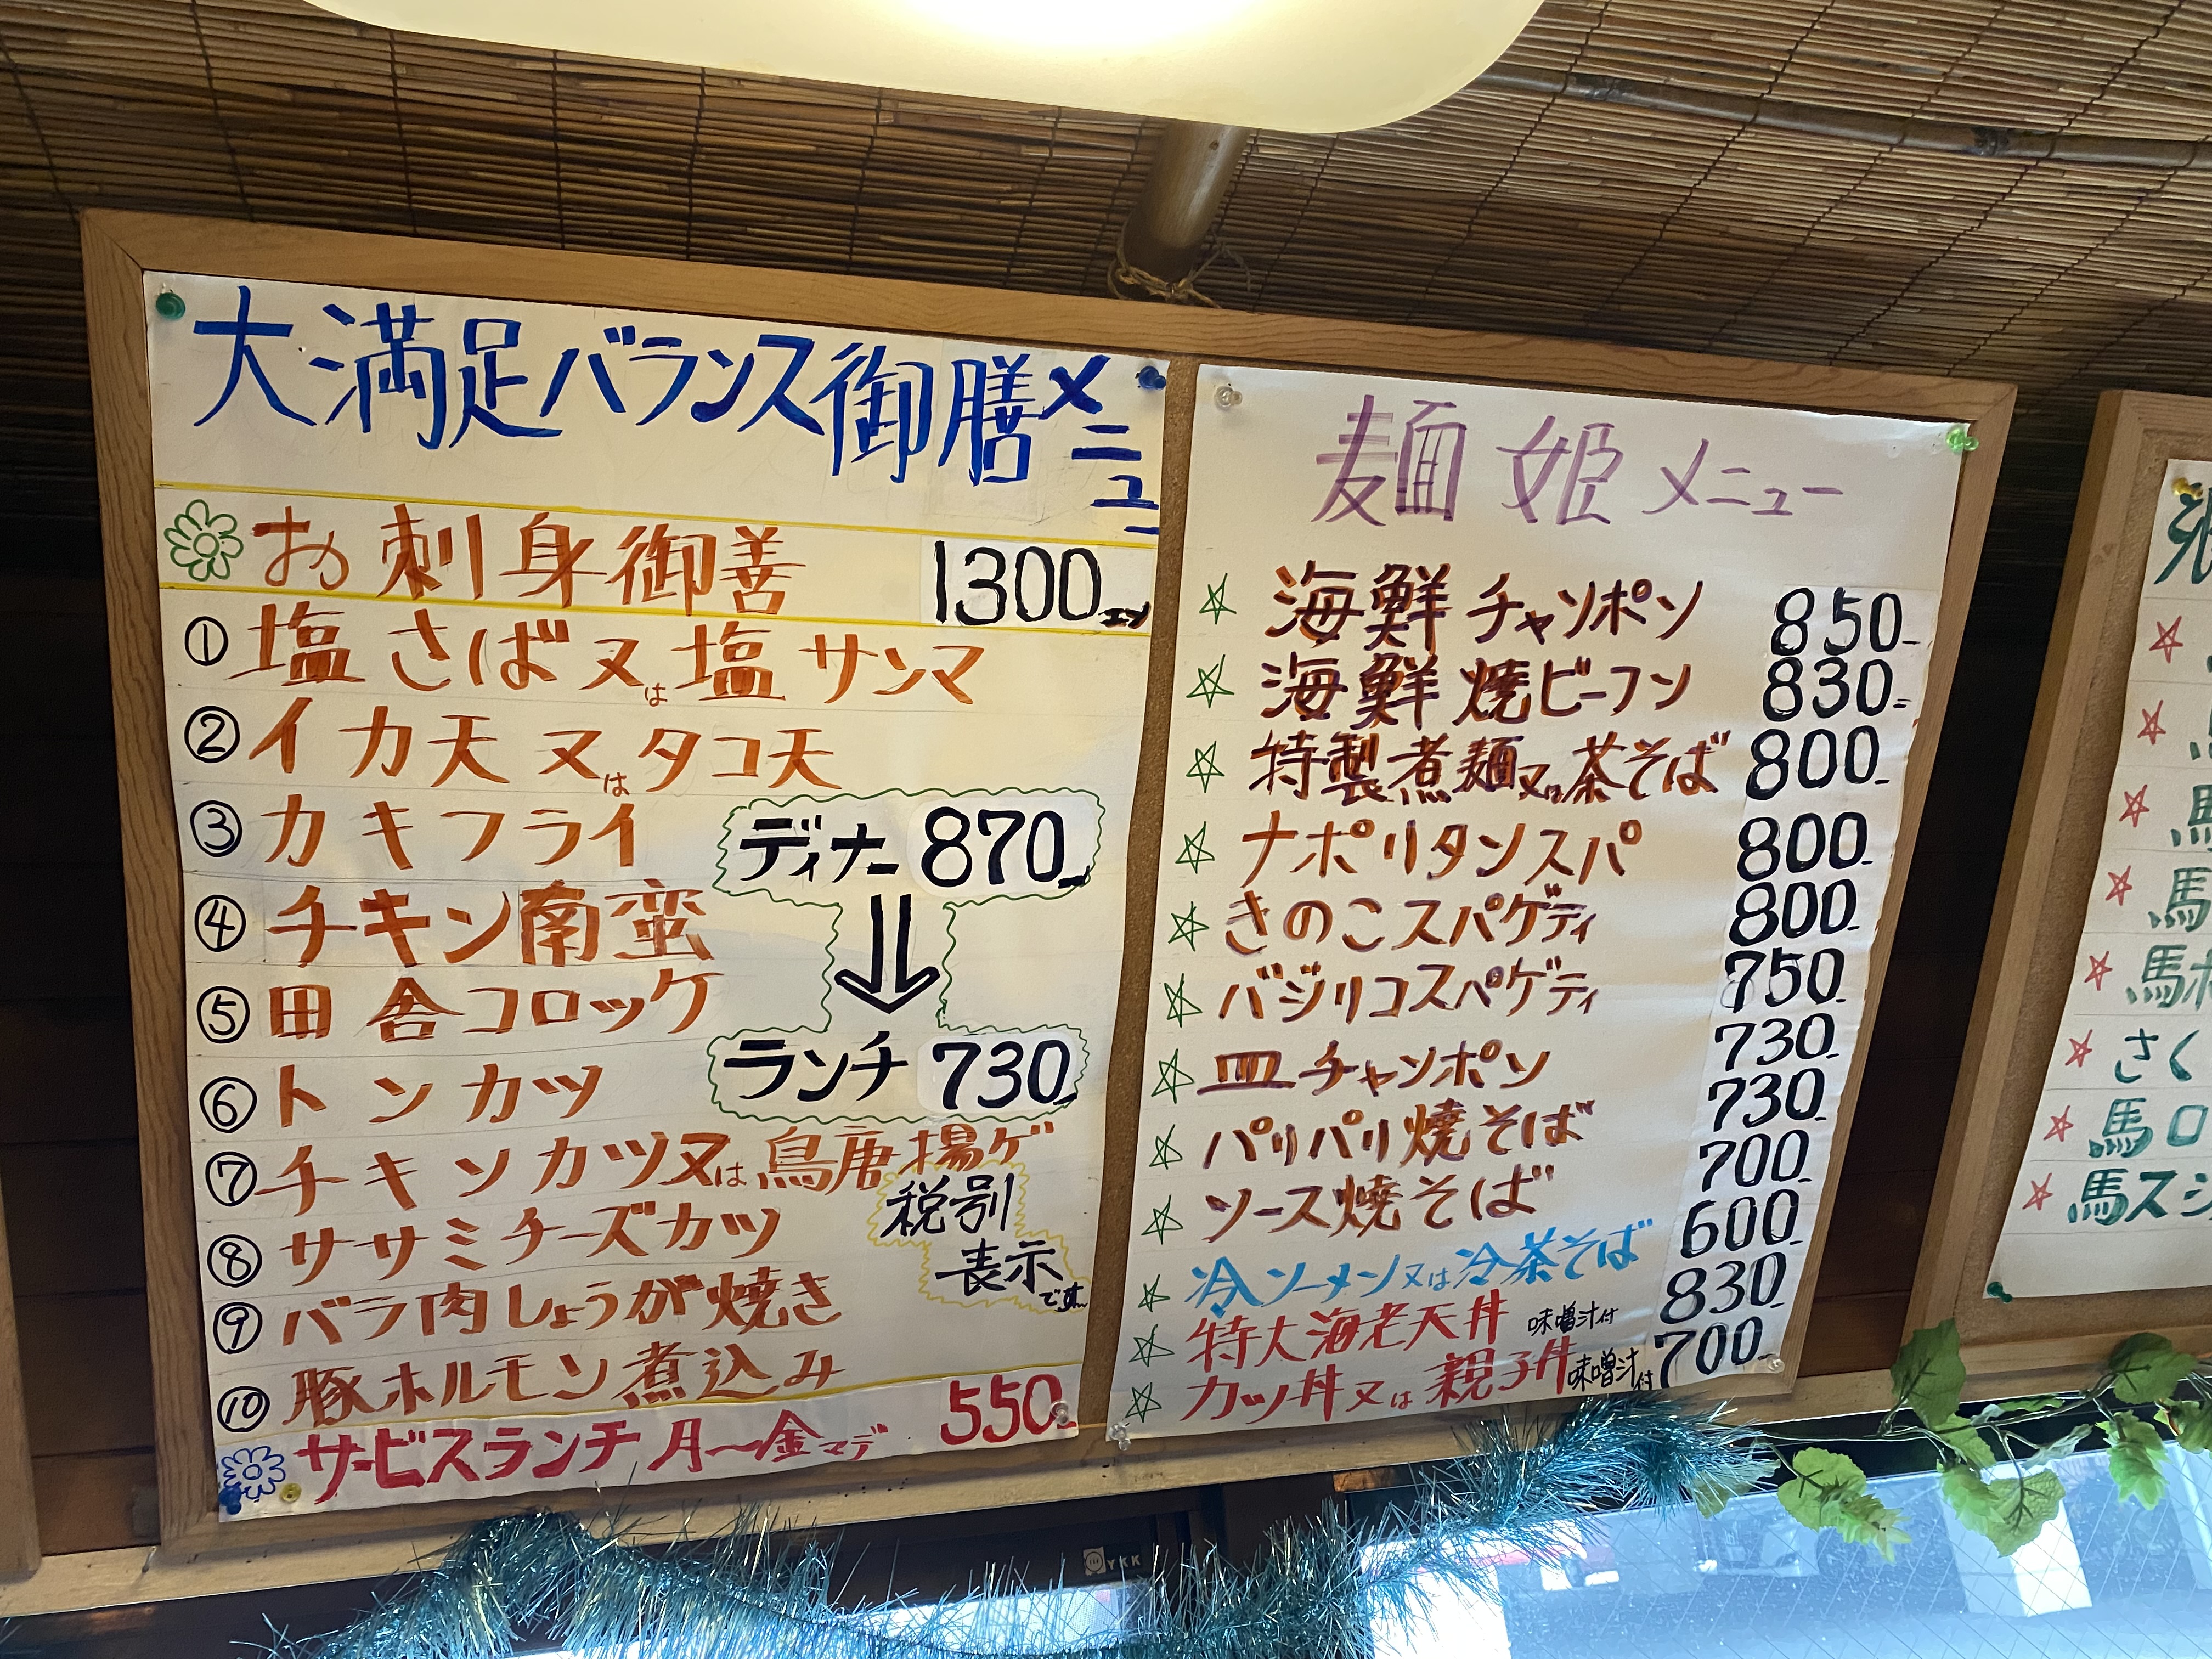 大満足バランス御膳メニュー
お刺身御善 1300エン
① 塩さば又は塩サンマ
② イカ天又はタコ天
③ カキフライ
④ チキン南蛮
⑤ 田舎コロッケ
⑥ トンカツ
⑦ チキンカツ又は鳥唐揚ゲ
⑧ ササミチーズカツ
⑨ バラ肉しょうが焼き
⑩ 豚ホルモン煮込み
ディナー 870
ランチ 730
税別
表示です
サービスランチ 月〜金マデ 550
麺姫メニュー
☆ 海鮮チャンポン 850
☆ 海鮮焼ビーフン 830
☆ 特製煮麺又は茶そば 800
☆ ナポリタンスパ 800
☆ きのこスパゲティ 800
☆ バジリコスパゲティ 750
☆ 皿チャンポン 730
☆ パリパリ焼そば 730
☆ ソース焼そば 700
☆ 冷ソーメン又は冷茶そば 600
☆ 特大海老天丼 味噌汁付 830
☆ カツ丼又は親子丼 味噌汁付 700
☆ 馬
☆ 馬
☆ さく
☆ 馬ロ
☆ 馬スジ
YKK